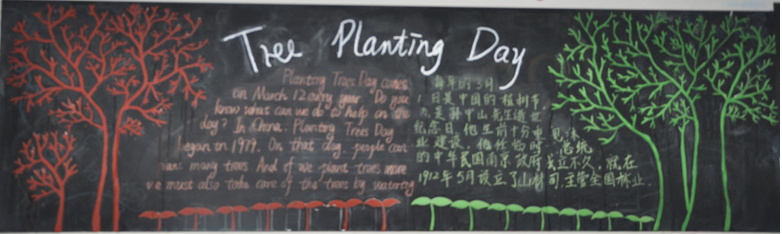 Tree Planting Day
Planting Trees Day comes
on March 12 every year. Do you
know what can we do to help on the
day? In China, Planting Trees Day
began in 1979. On that day, people can
plant many trees. And if we plant trees more
we must also take care of the trees by watering
每年的3月
日是中国的植树节,
是孙中山先生逝世
纪念日,他生前十分重视
业建设,他任临时总统
的中华民国南京政府成立不久,就在
1912年5月设立了山林司,主管全国林业.